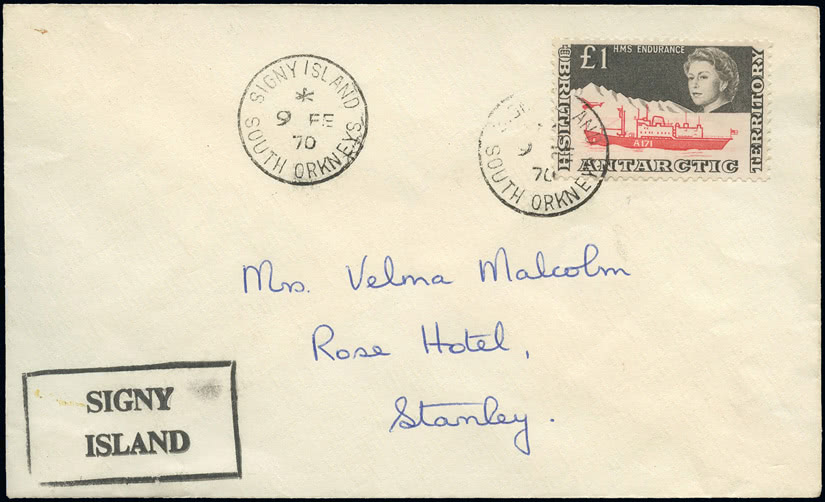 SIGNY ISLAND
*
9 FE
70
SOUTH ORKNEYS
£1 HMS ENDURANCE
BRITISH
ANTARCTIC
TERRITORY
A171
9
70
SOUTH ORKNEYS
Mrs. Velma Malcolm
Rose Hotel,
Stanley.
SIGNY
ISLAND